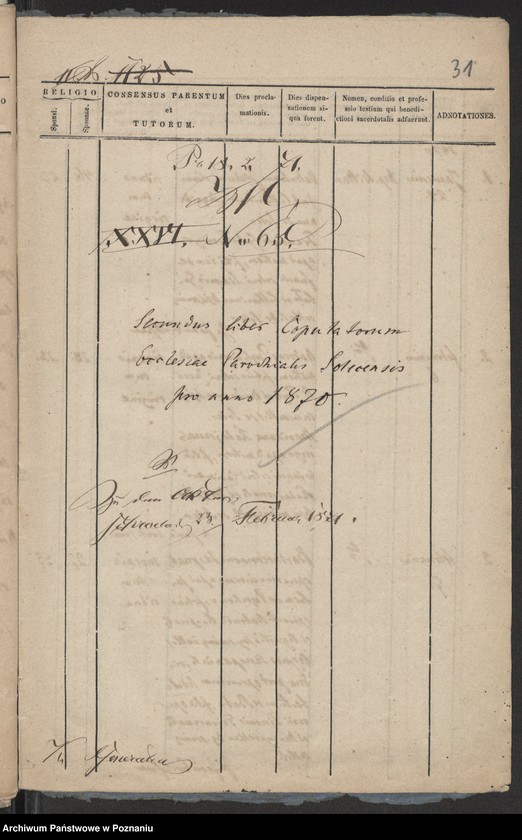 1125
31
RELIGIO
Sponsi.
Sponsae.
CONSENSUS PARENTUM
et
TUTORUM.
Dies procla-
mationis.
Dies dispen-
sationum si-
qua forent.
Nomen, conditio et profes-
sio testium qui benedi-
ctioni sacerdotali adfuerunt.
ADNOTATIONES.
XXVI. No 65.
Secundus liber Copulatorum
Ecclesiae Parochialis Solecensis
pro anno 1870.
Zu den Akten
23 Februar 1871.
Archiwum Państwowe w Poznaniu